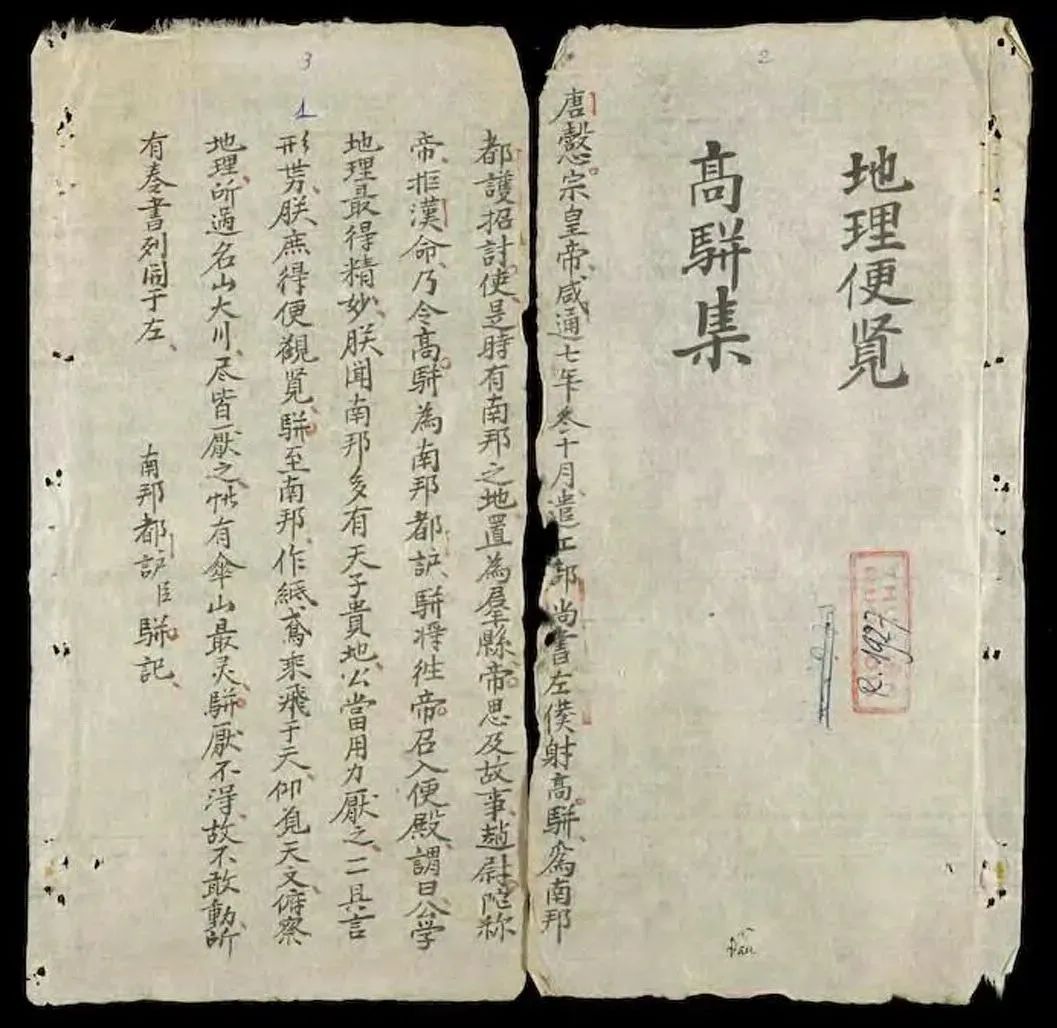 地理便覧
高駢集
2
唐懿宗皇帝咸通七年叁十月遣工部尚書左僕射高駢爲南邦
都護招討使是時有南邦之地置為郡縣帝思及故事趙尉陀称
帝拒漢命乃令高駢為南邦都𧦈駢将徃帝召入便殿謂曰公学
地理最得精妙朕聞南邦多有天子貴地公當用力厭之一一具言
形势朕庶得便觀覽駢至南邦作紙鳶乘飛于天仰覓天文俯察
地理所過名山大川尽皆厭之惟有傘山最灵駢厭不淂故不敢動所
有奏書列啚于左
南邦都𧦈臣駢記
3
1
R.1927